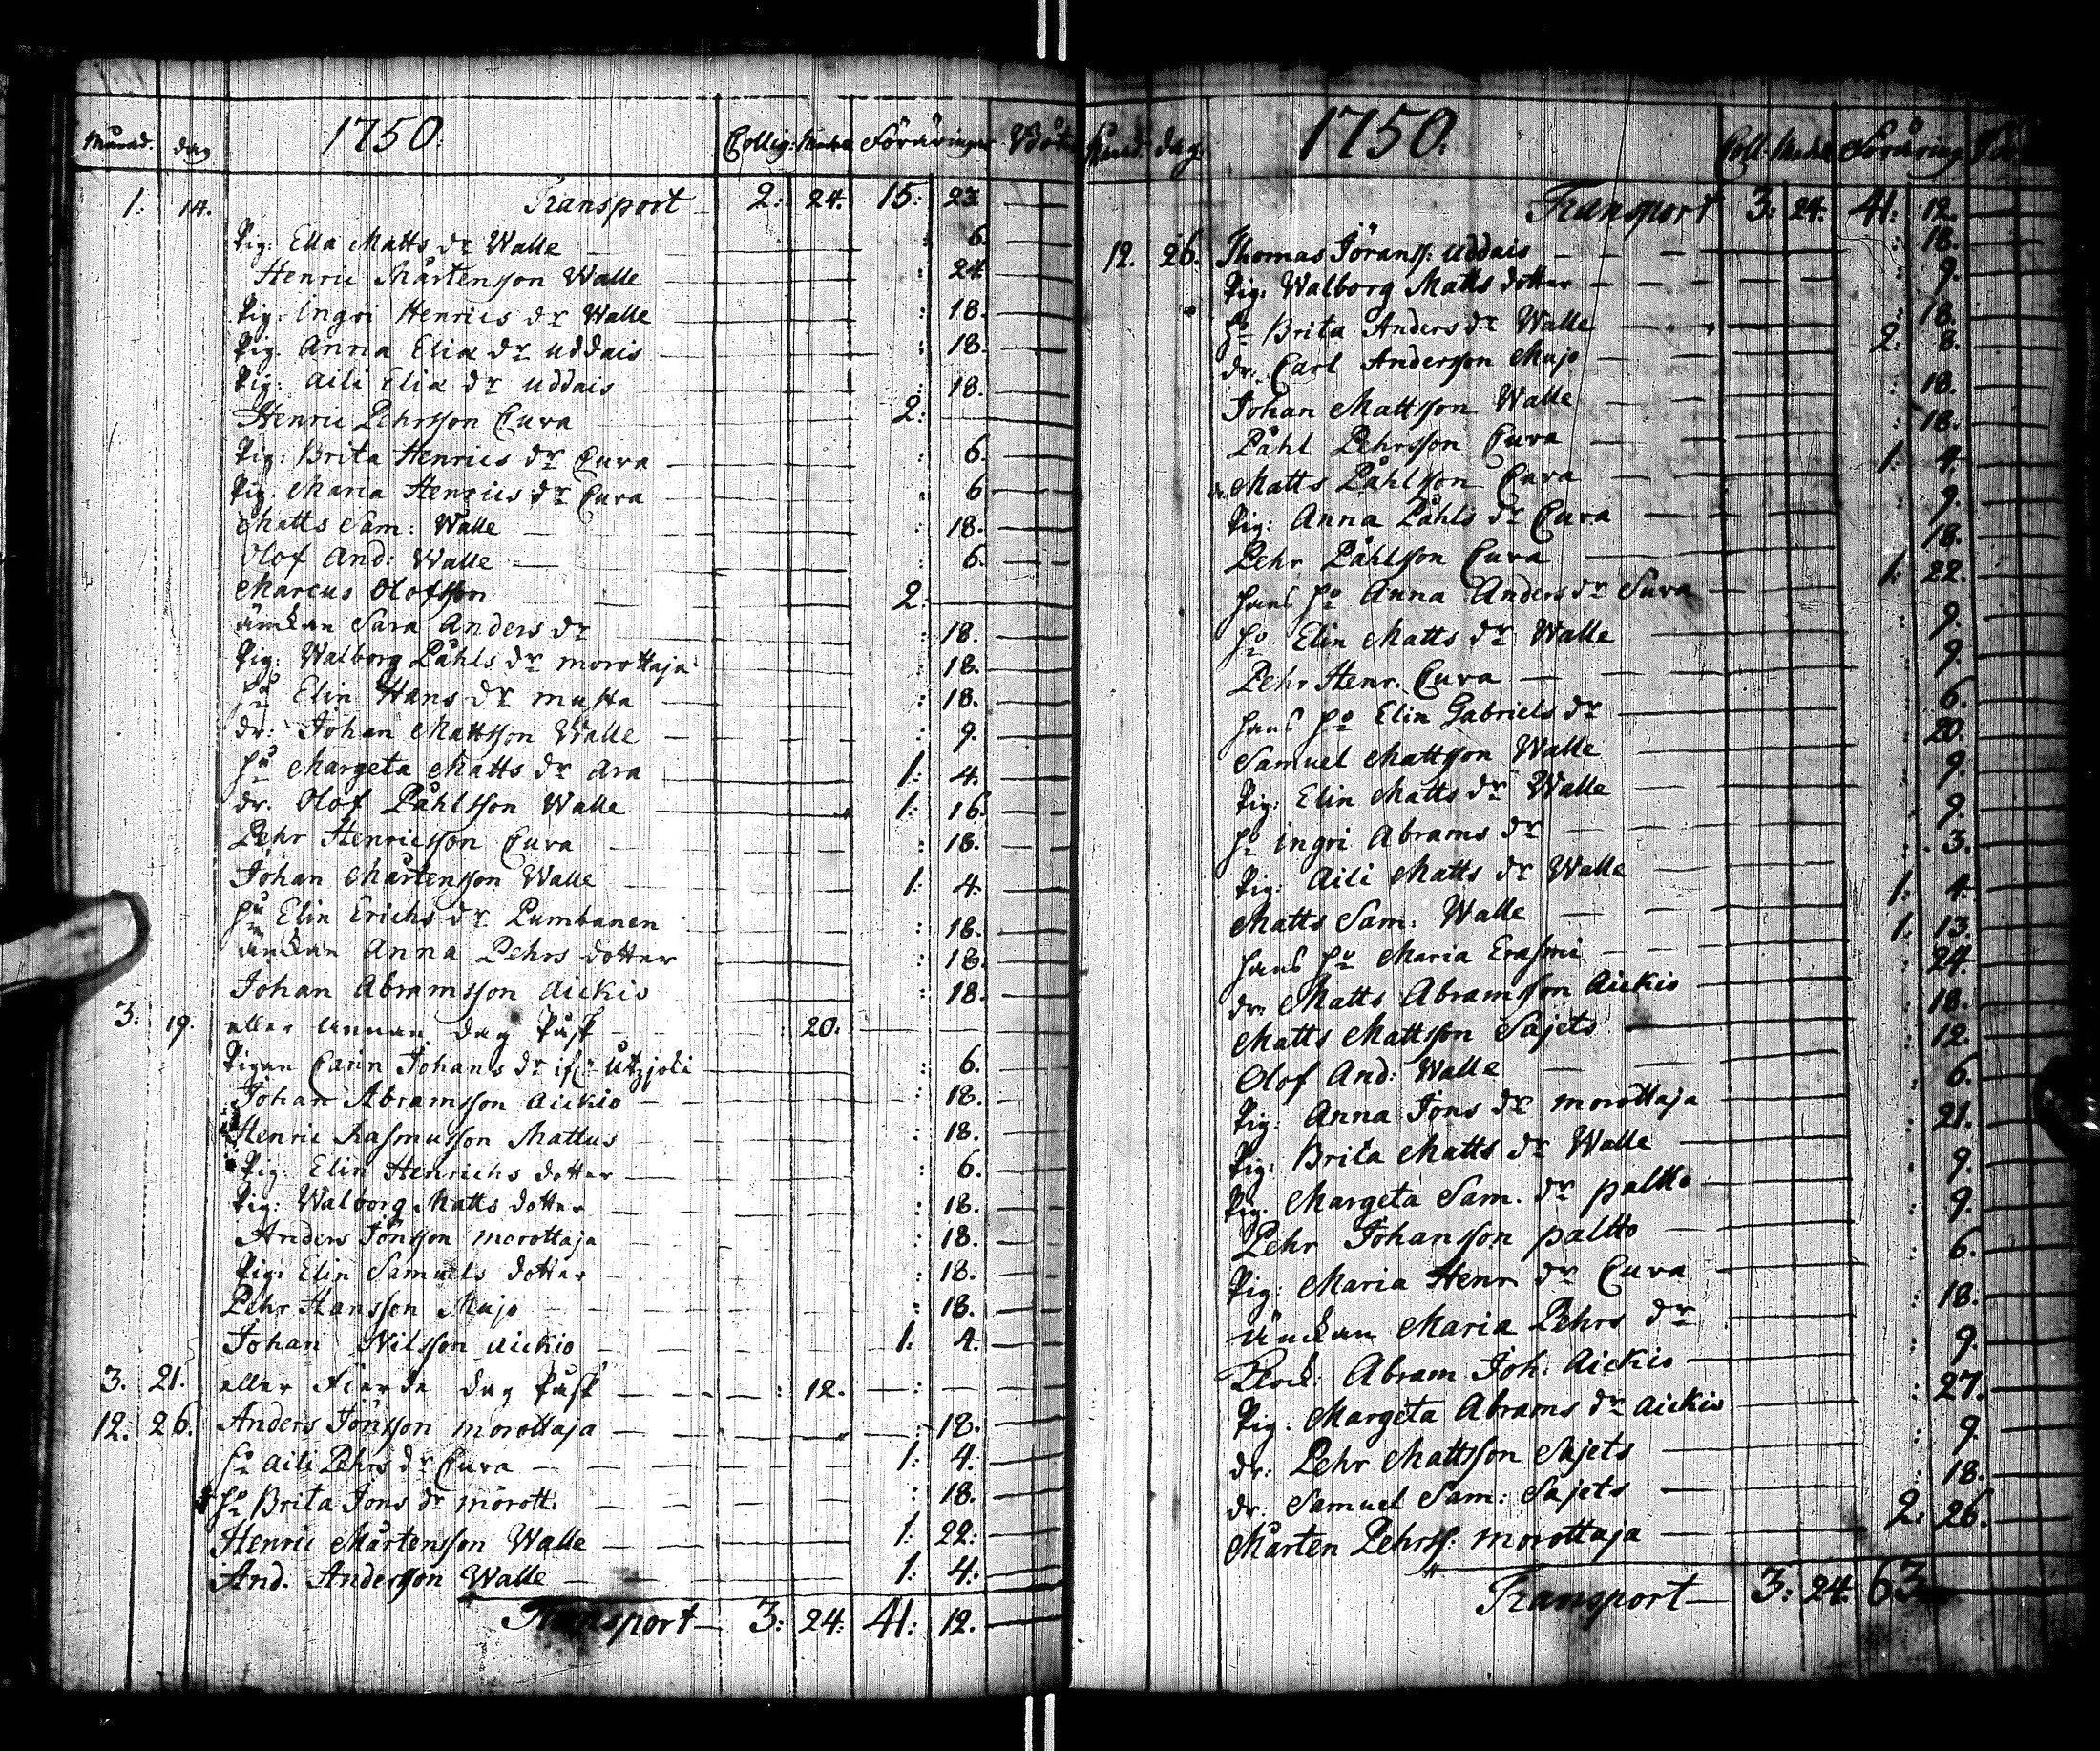 Månad. dag 1750. Collig: Föräringar
1: 14. Transport 2: 24. 15: 23
Pig: Ella Matts dr Walle : 6.
Henric Mårtensson Walle : 24
Pig: Ingri Henrics dr Walle : 18.
Pig. Anna Eliæ dr Uddais : 18.
Pig: Aili Eliæ dr Uddais : 18.
Henric Pehrsson Cuva 2:
Pig: Brita Henrics dr Cuva : 6.
Pig. Maria Henrics dr Cuva : 6
Matts Sam: Walle : 18.
Olof And: Walle : 6.
Marcus Olofsson 2:
änckan Sara Anders dr : 18.
Pig: Walborg Påhls dr morottaja : 18.
hu Elin Hans dr musta : 18.
dr: Johan Mattsson Walle : 9.
hu Margeta Matts dr Ara 1: 4.
dr. Olof Påhlsson Walle 1: 16.
Pehr Henricsson Cuva : 18.
Johan Mårtensson Walle 1: 4.
hu Elin Erichs dr Pumbanen : 18.
änckan Anna Pehrs dotter : 18.
Johan Abramsson Aickio : 18.
3: 19. eller annan dag Påsk : 20.
Pigan Carin Johans dr ifr: Utzjocki : 6.
Johan Abramsson Aickio : 18.
Henric Rasmusson Mattus : 18.
Pig: Elin Henrichs dotter : 6.
Pig: Walborg Matts dotter : 18.
Anders Jönsson morottaja : 18.
Pig: Elin Samuels dotter : 18.
Pehr Hansson Mujo : 18.
Johan Nilsson Aickio 1: 4.
3. 21. eller Fierde dag Påsk : 12.
12. 26. Anders Jönsson morottaja : 18.
hu Aili Pehrs dr Cuva 1: 4.
hu Brita Jons dr morott: : 18.
Henric Mårtensson Walle 1: 22:
And. Andersson Walle 1: 4.
Transport 3: 24: 41: 12.
dag. 1750. Coll. Föräring
Transport 3: 24: 41: 12.
12. 26. Thomas Jöranss: Uddais : 18.
Pig: Walborg Matts dotter : 9.
hu Brita Anders dr Walle : 18.
dr. Carl Andersson Mujo 2: 8.
Johan Mattsson Walle : 18.
Påhl Pehrsson Cuva : 18.
Matts Påhlsson Cuva 1: 4.
Pig: Anna Påhls dr Cuva : 9.
Pehr Påhlsson Cuva 18.
hans hu Anna Anders dr Suva 1: 22.
hu Elin Matts dr Walle : 9.
Pehr Henr. Cuva 9.
hans hu Elin Gabriels dr : 6.
Samuel Mattsson Walle : 20.
Pig: Elin Matts dr Walle : 9.
hu Ingri Abrams dr : 9.
Pig: Aili Matts dr Walle : 3.
Matts Sam: Walle 1: 4.
hans hu Maria Erasmi 1: 13.
dr. Matts Abramsson Aickio : 24.
Matts Mattsson Sajets : 18.
Olof And: Walle : 12.
Pig: Anna Jons dr morottaja : 6.
Pig: Brita Matts dr Walle : 21.
Pig. Margeta Sam. dr paltto : 9.
Pehr Johansson paltto : 9.
Pig: Maria Henr dr Cuva : 6.
änckan Maria Pehrs dr : 18.
Klock: Abram Joh: Aickio : 9.
Pig: Margeta Abrams dr Aickio : 27.
dr: Pehr Mattsson Sajets : 9.
dr: Samuel Sam: Sajets : 18.
Mårten Pehrss: morottaja 2: 26.
Transport 3: 24. 63